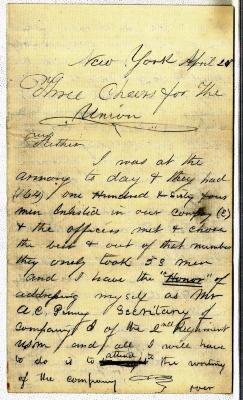 New York April 21
Three Cheers for The
Union
I was at the
armory to day & they had
(164) one Hundred & sixty four
men Enlistid in our Company (C)
& the officers met & chose
the best & out of that number
they onely took 53 men
and I have the "Honor" of
addressing myself as Mr
A.C. Secretary of
Company of the 2nd Regiment
and all I will have
to do is to attend to the writing
of the company
over